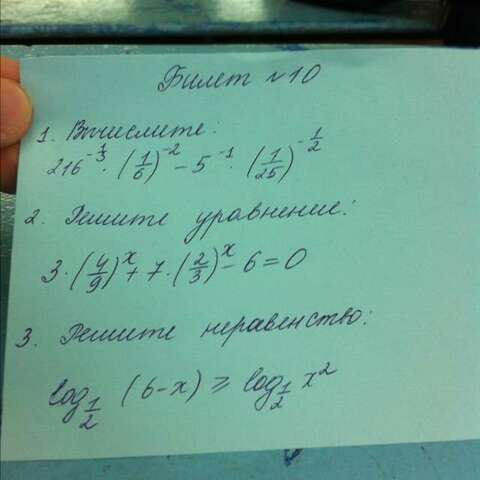 Билет №10
1. Вычислите:
216^{-\frac{1}{3}} · (\frac{1}{6})^{-2} - 5^{-1} · (\frac{1}{25})^{-\frac{1}{2}}
2. Решите уравнение:
3·(\frac{4}{9})^x + 7·(\frac{2}{3})^x - 6 = 0
3. Решите неравенство:
log_{\frac{1}{2}} (6-x) ≥ log_{\frac{1}{2}} x^2